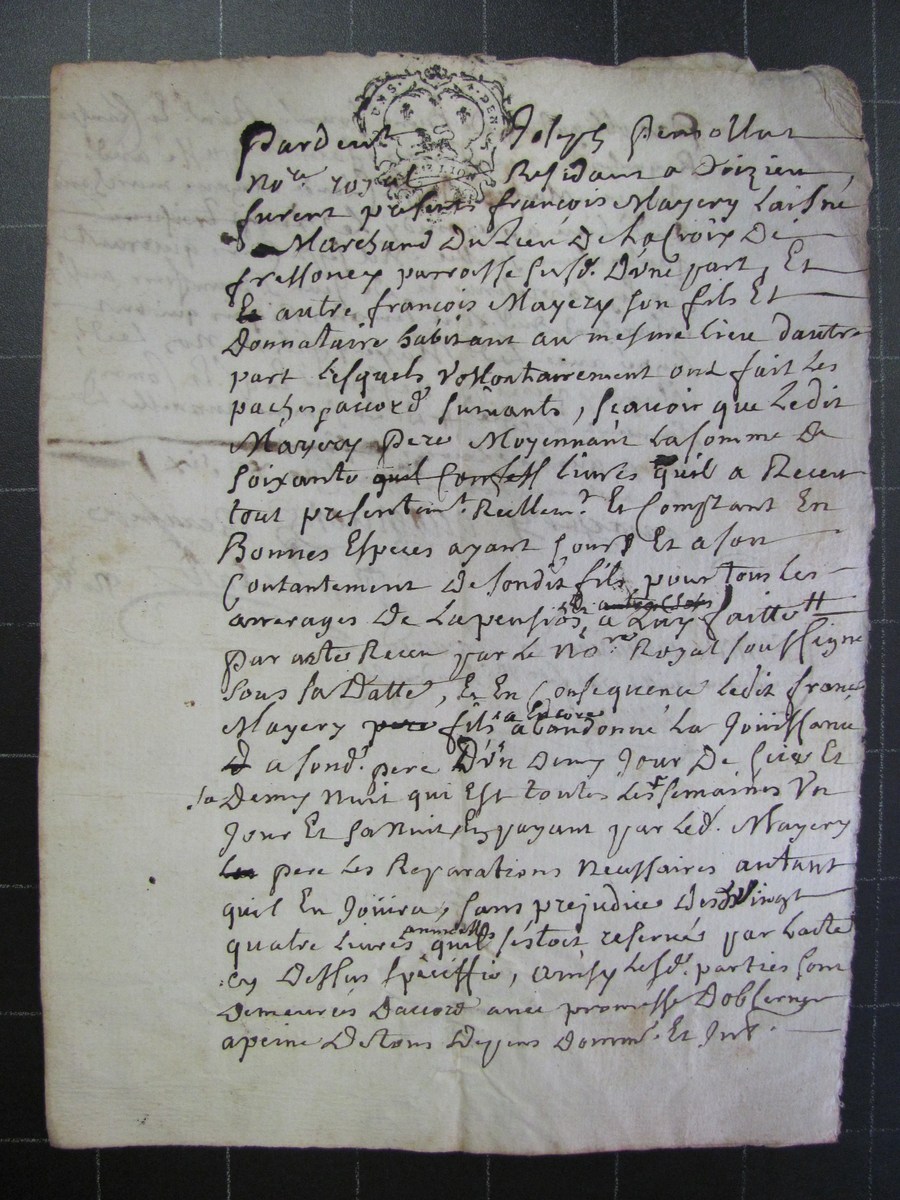 Pardevt Joseph Pensollut
Nore royal Residant a Doizieu
furent presents françois Mayery Laisné
Marchand Du Lieu De La Croix De
fressoney parroisse susd. D'une part, Et
autre françois Mayery son fils Et
Donnataire habitant au mesme Lieu dautre
part Lesquels vollontairement ont fait Les
paches accord suivants, scauoir que Ledit
Mayery pere Moyennant La somme De
soixante quil Confess Livres quil a Receu
tout presentemt. Reellemt. Et Comptant En
Bonnes Especes ayant Cours Et a son
Contantement De sondit fils pour tous Les
arrerages De La pension a Luy faitte
par acte Receu par Le Nore Royal soussigné
sous sa Datte, Et En Consequence Ledit franc
Mayery pere fils a Encore abandonné La Jouissance
a sond. pere D'un Demy Jour De scie Et
sa Demy Nuit qui Est toutes Les semaines Un
Jour Et sa Nuit, En payant par Led. Mayery
pere Les Reparations Necessaires autant
quil En Jouira, sans prejudice Des Vingt
quatre Livres annuelles quil s'estoit reservés par Lacte
cy Dessus speciffié, ainsy Lesd. parties sont
Demeurées Daccord avec promesse Dobserver
a peine De tous Depens Domm. Et Int.